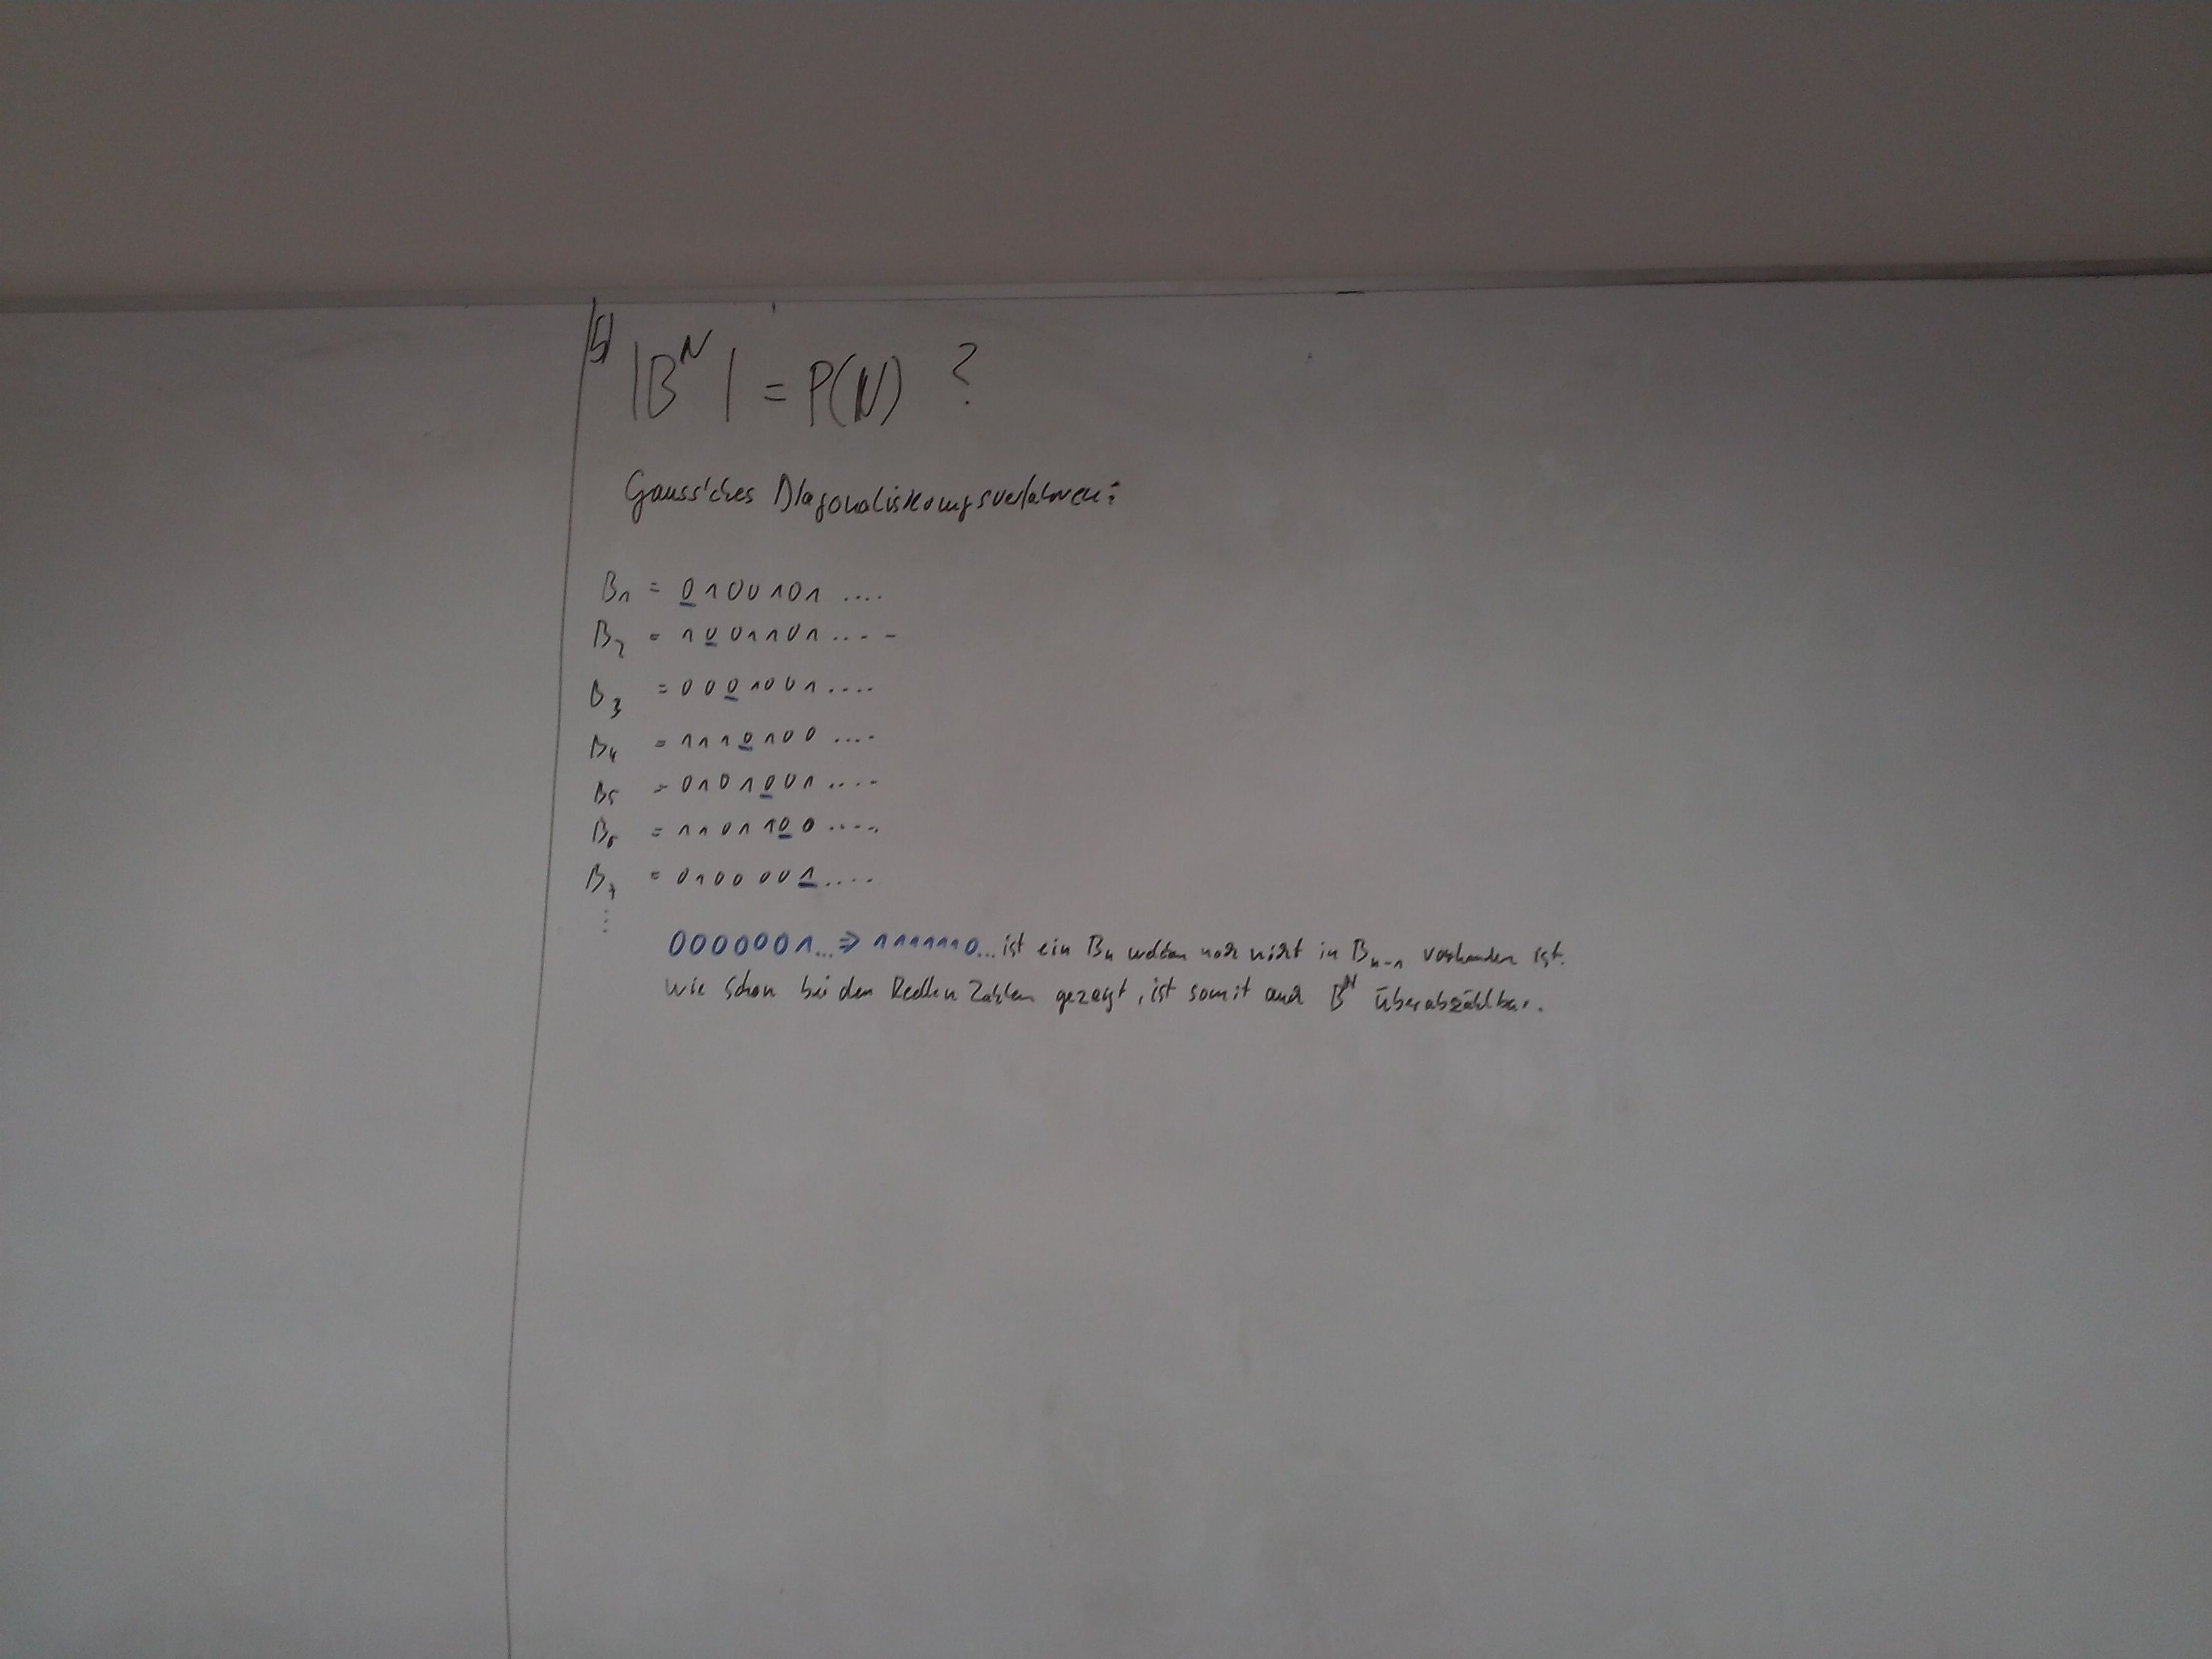 5)
|B^N| = P(N) ?
Gauss'ches Diagonalisierungsverfahren:
B₁ = 0100101 ....
B₂ = 1001101 ....-
B₃ = 0001001 ....
B₄ = 1110100 ....
B₅ = 0101001 ....
B₆ = 1101100 ....
B₇ = 0100001 ....
⋮
0000001... ⇒ 1111110... ist ein Bₙ welches noch nicht in Bₙ₋₁ vorhanden ist.
Wie schon bei den Reellen Zahlen gezeigt, ist somit auch B^N überabzählbar.